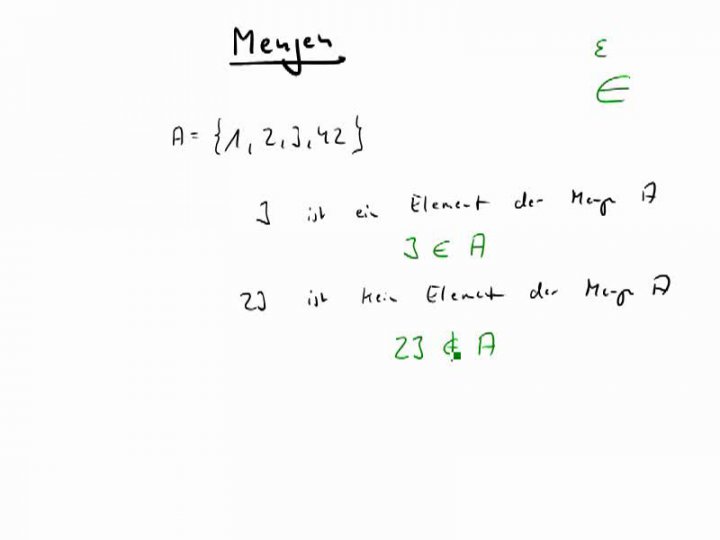 Mengen
ε
∈
A = {1, 2, 3, 42}
3 ist ein Element der Menge A
3 ∈ A
23 ist kein Element der Menge A
23 ∉ A